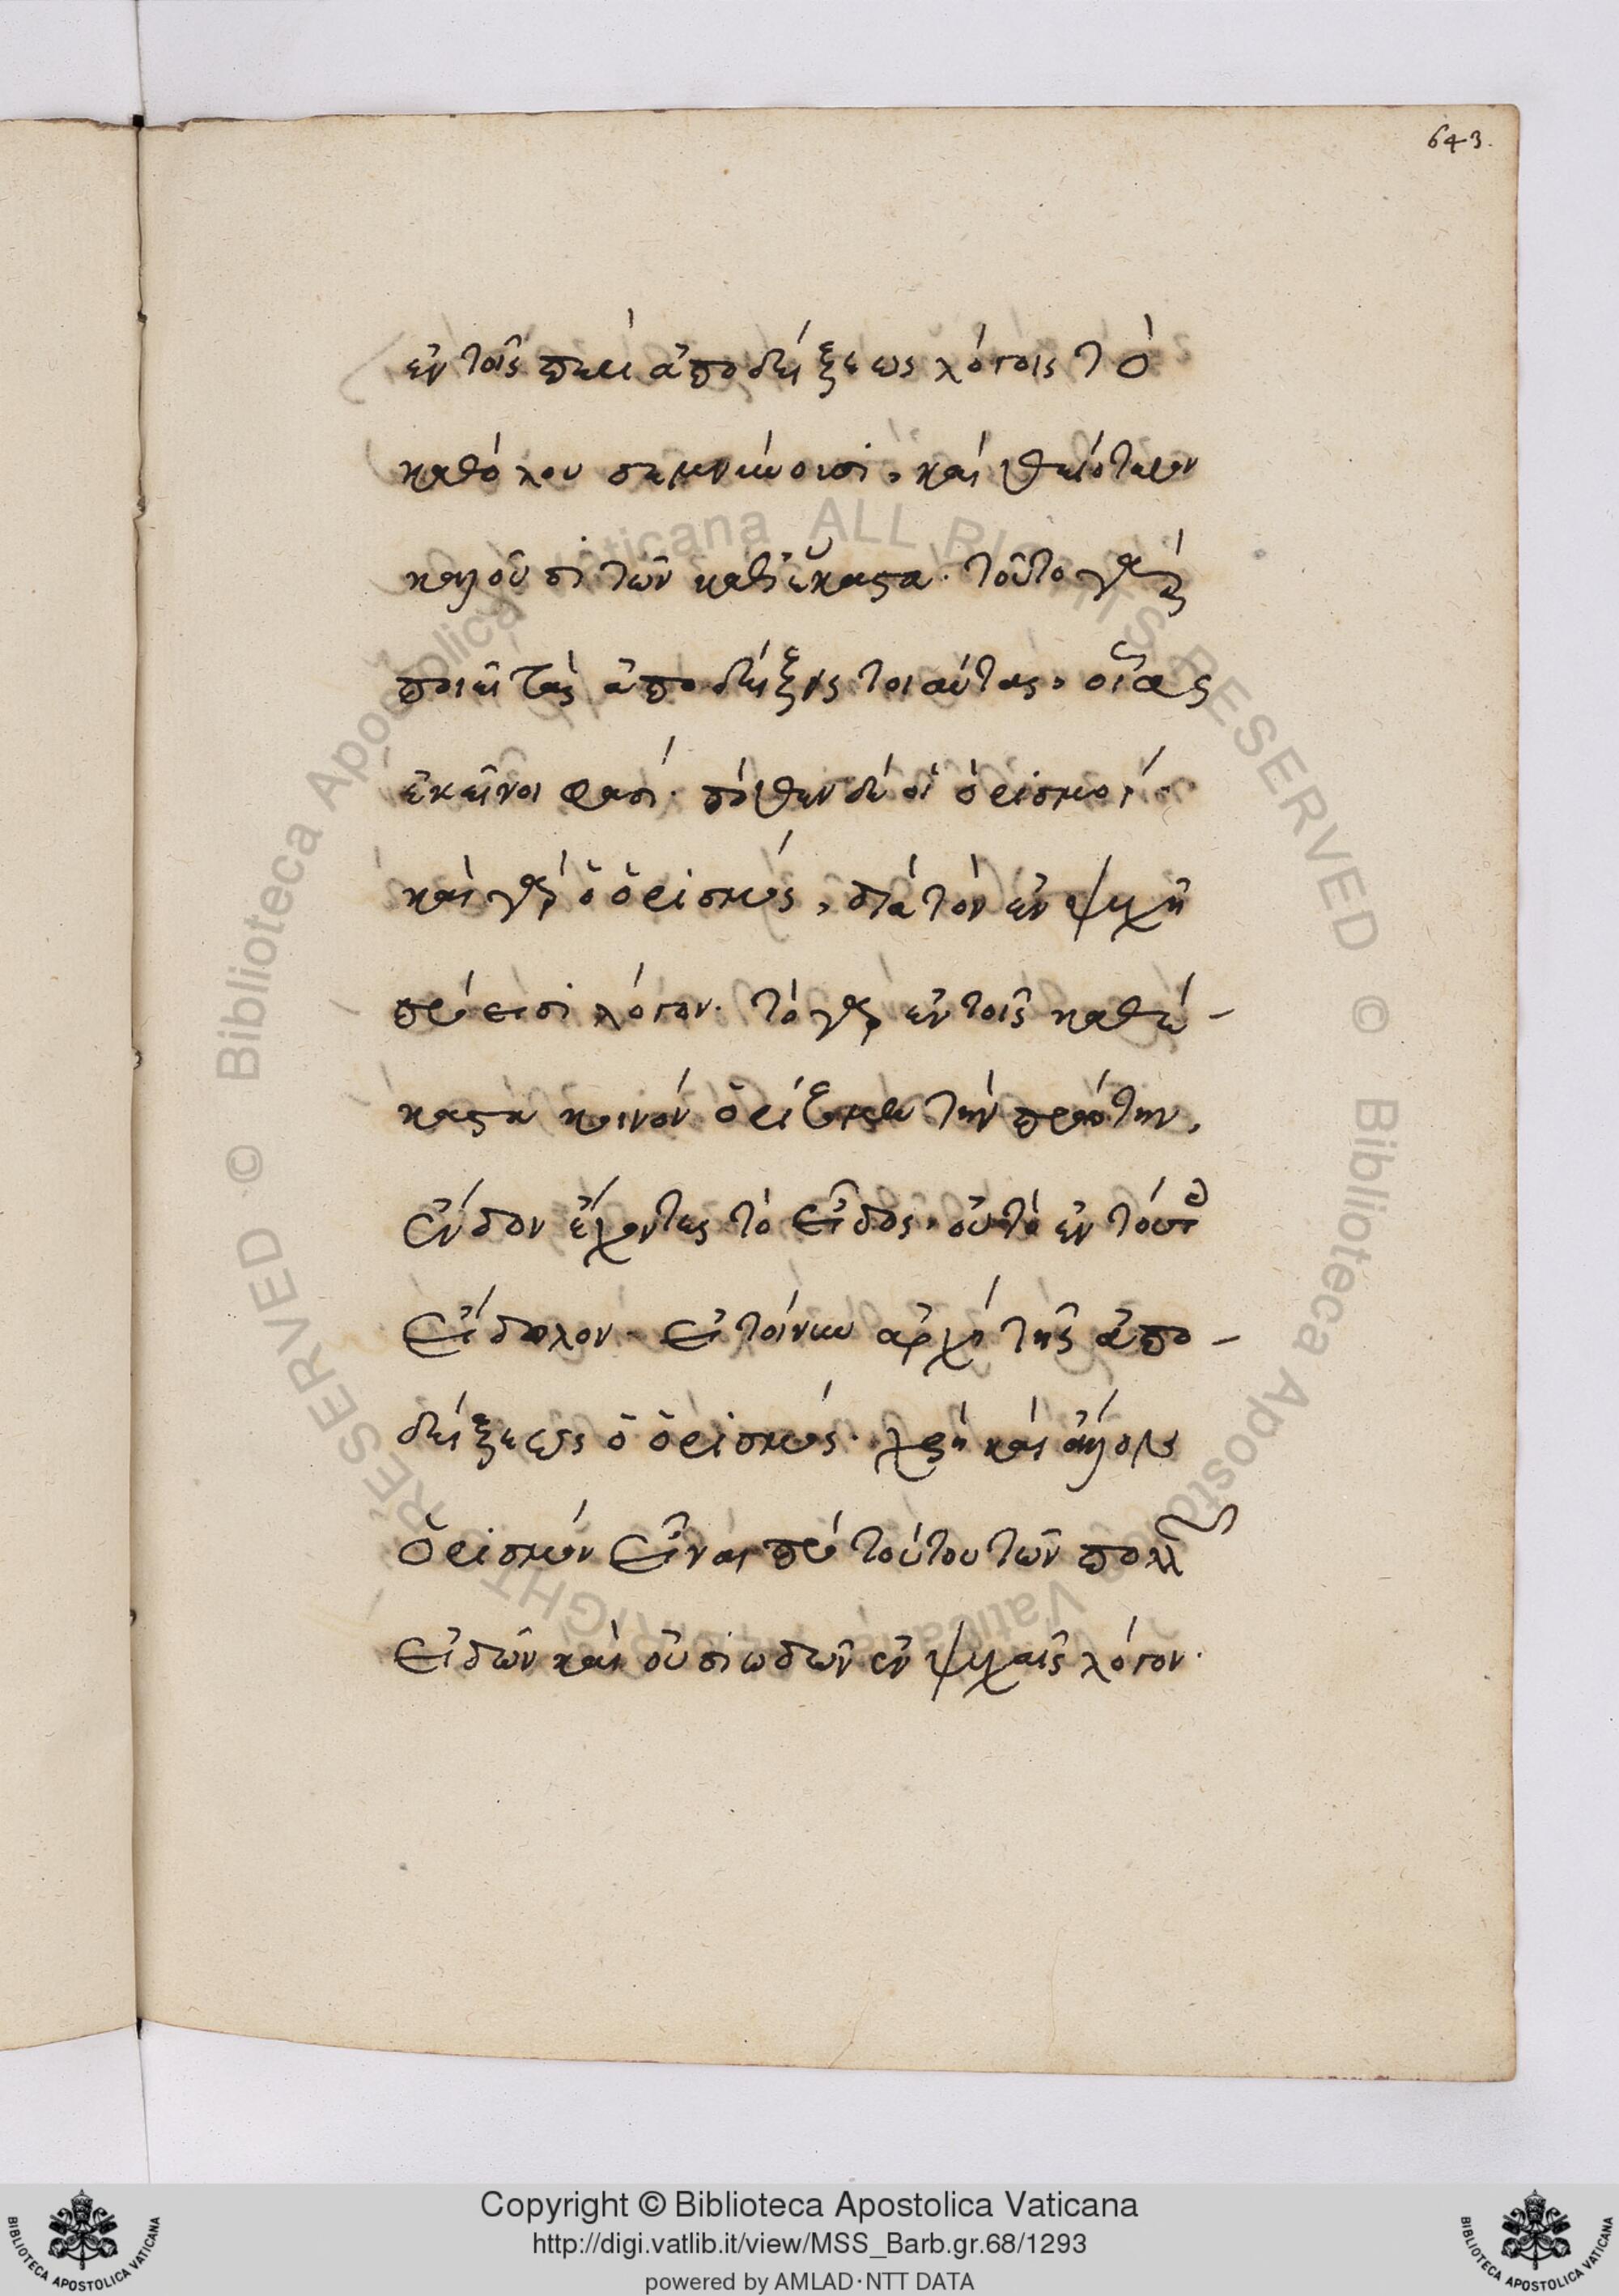 643.
ἐν τοῖς περὶ ἀποδείξεως λόγοις τὸ
καθόλου σεμνύουσι, καὶ θειότερον
καλοῦσι τῶν καθέκαστα. τοῦτο γὰρ
ποιεῖ τὰς ἀποδείξεις τοιαύτας, οἵας
ἐκεῖνοι φασί. πόθεν δὲ οἱ ὁρισμοί
καὶ γὰρ ὁ ὁρισμός, διὰ τὸν ἐν ψυχῇ
πρόεισι λόγον. τὸ γὰρ ἐν τοῖς καθέ-
καστα κοινὸν ὁριζόμεθα τὴν πρώτην,
ἔνδον ἔχοντες τὸ εἶδος, οὗ τὸ ἐν τούτοις
εἴδωλον. εἰ τοίνυν ἀρχὴ τῆς ἀπο-
δείξεως ὁ ὁρισμός. χρὴ καὶ ἄλλον
ὁρισμὸν εἶναι πρὸ τούτου τῶν πολλῶν
εἰδῶν καὶ οὐσιωδῶν ἐν ψυχαῖς λόγον.
Copyright © Biblioteca Apostolica Vaticana
http://digi.vatlib.it/view/MSS_Barb.gr.68/1293
powered by AMLAD·NTT DATA
BIBLIOTECA APOSTOLICA VATICANA
BIBLIOTECA APOSTOLICA VATICANA
© Biblioteca Apostolica Vaticana ALL RIGHTS RESERVED
© Biblioteca Apostolica Vaticana ALL RIGHTS RESERVED